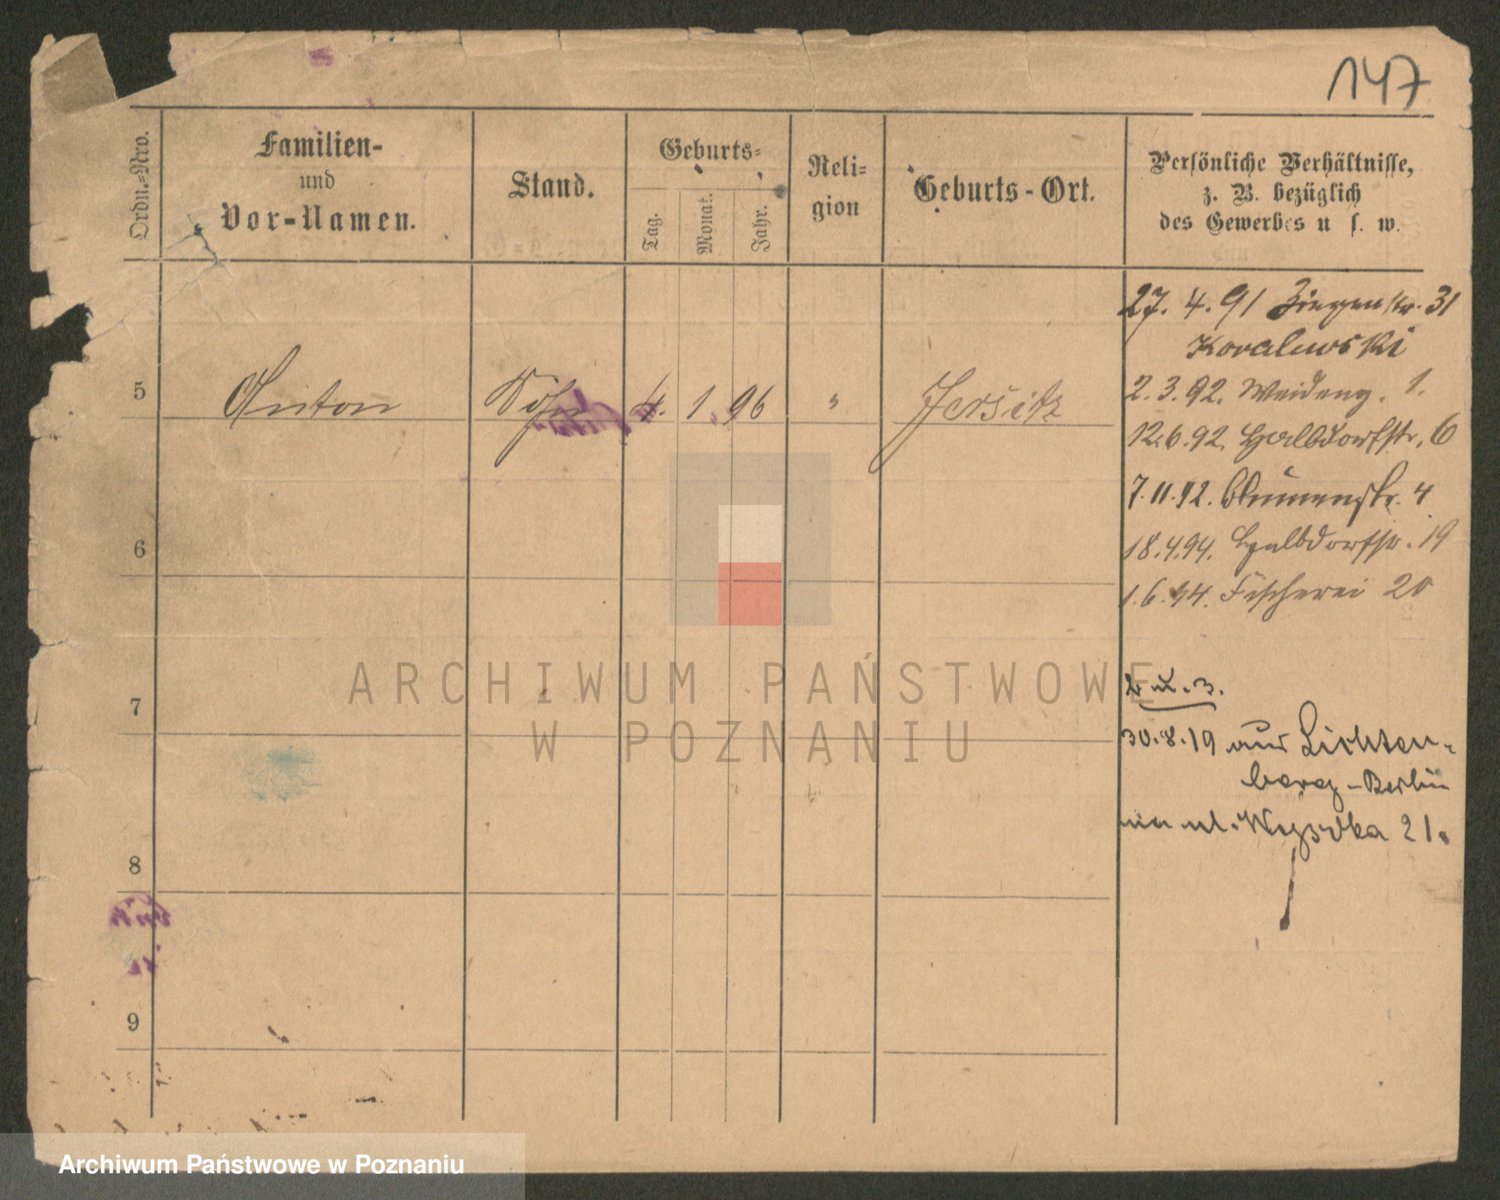 147
Ordn.-Nro.
Familien-
und
Vor-Namen.
Stand.
Geburts-
Tag.
Monat.
Jahr.
Reli-
gion
Geburts-Ort.
Persönliche Verhältnisse,
z. B. bezüglich
des Gewerbes u. s. w.
5
Anton
Sohn
4. 1. 96
"
Jersitz
6
7
8
9
27. 4. 91 Ziegenstr. 31
Kovalewski
2. 3. 92. Weideng. 1.
12. 6. 92. Halbdorfstr. 6
7. 11. 92. Blumenstr. 4
18. 4. 94. Halbdorfstr. 19
1. 6. 94. Fischerei 20
2 u. 3.
30. 8. 19 aus Lichten-
berg-Berlin
ul. Wysoka 21.
ARCHIWUM PAŃSTWOWE
W POZNANIU
Archiwum Państwowe w Poznaniu